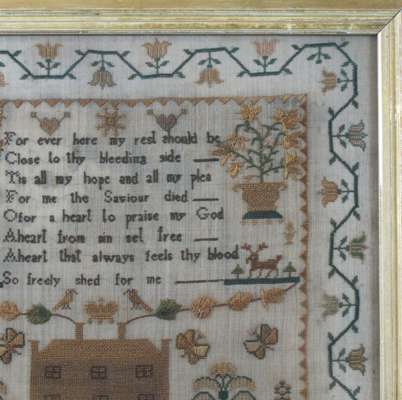 For ever here my rest should be
Close to thy bleeding side
Tis all my hope and all my plea
For me the Saviour died
Ofor a heart to praise my God
Aheart from sin set free
Aheart that always feels thy blood
So freely shed for me